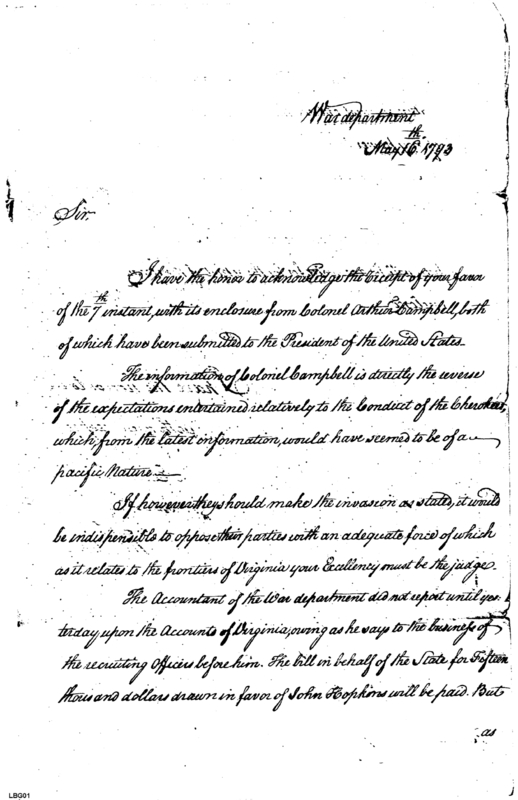 War department
May 16th. 1793
Sir.
I have the honor to acknowledge the receipt of your favor
of the 7th instant, with its enclosure from Colonel Arthur Campbell, both
of which have been submitted to the President of the United States.
The information of Colonel Campbell is directly the reverse
of the expectations entertained relatively to the Conduct of the Cherokees,
which, from the latest information, would have seemed to be of a
pacific Nature
If however they should make the invasion as stated, it would
be indispensible to oppose their parties with an adequate force of which
as it relates to the frontiers of Virginia your Excellency must be the judge.
The Accountant of the War department did not report until yes-
terday upon the Accounts of Virginia, owing as he says to the business of
the recruiting Officers before him. The bill in behalf of the State for Fifteen
thousand dollars drawn in favor of John Hopkins will be paid. But
as
LBG01